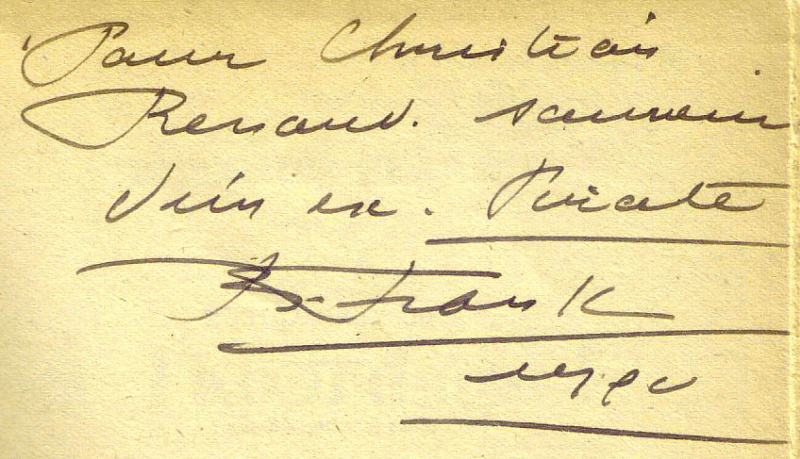 Pour Christian
Renaud. souvenir
d'un ex. Pirate
Frank